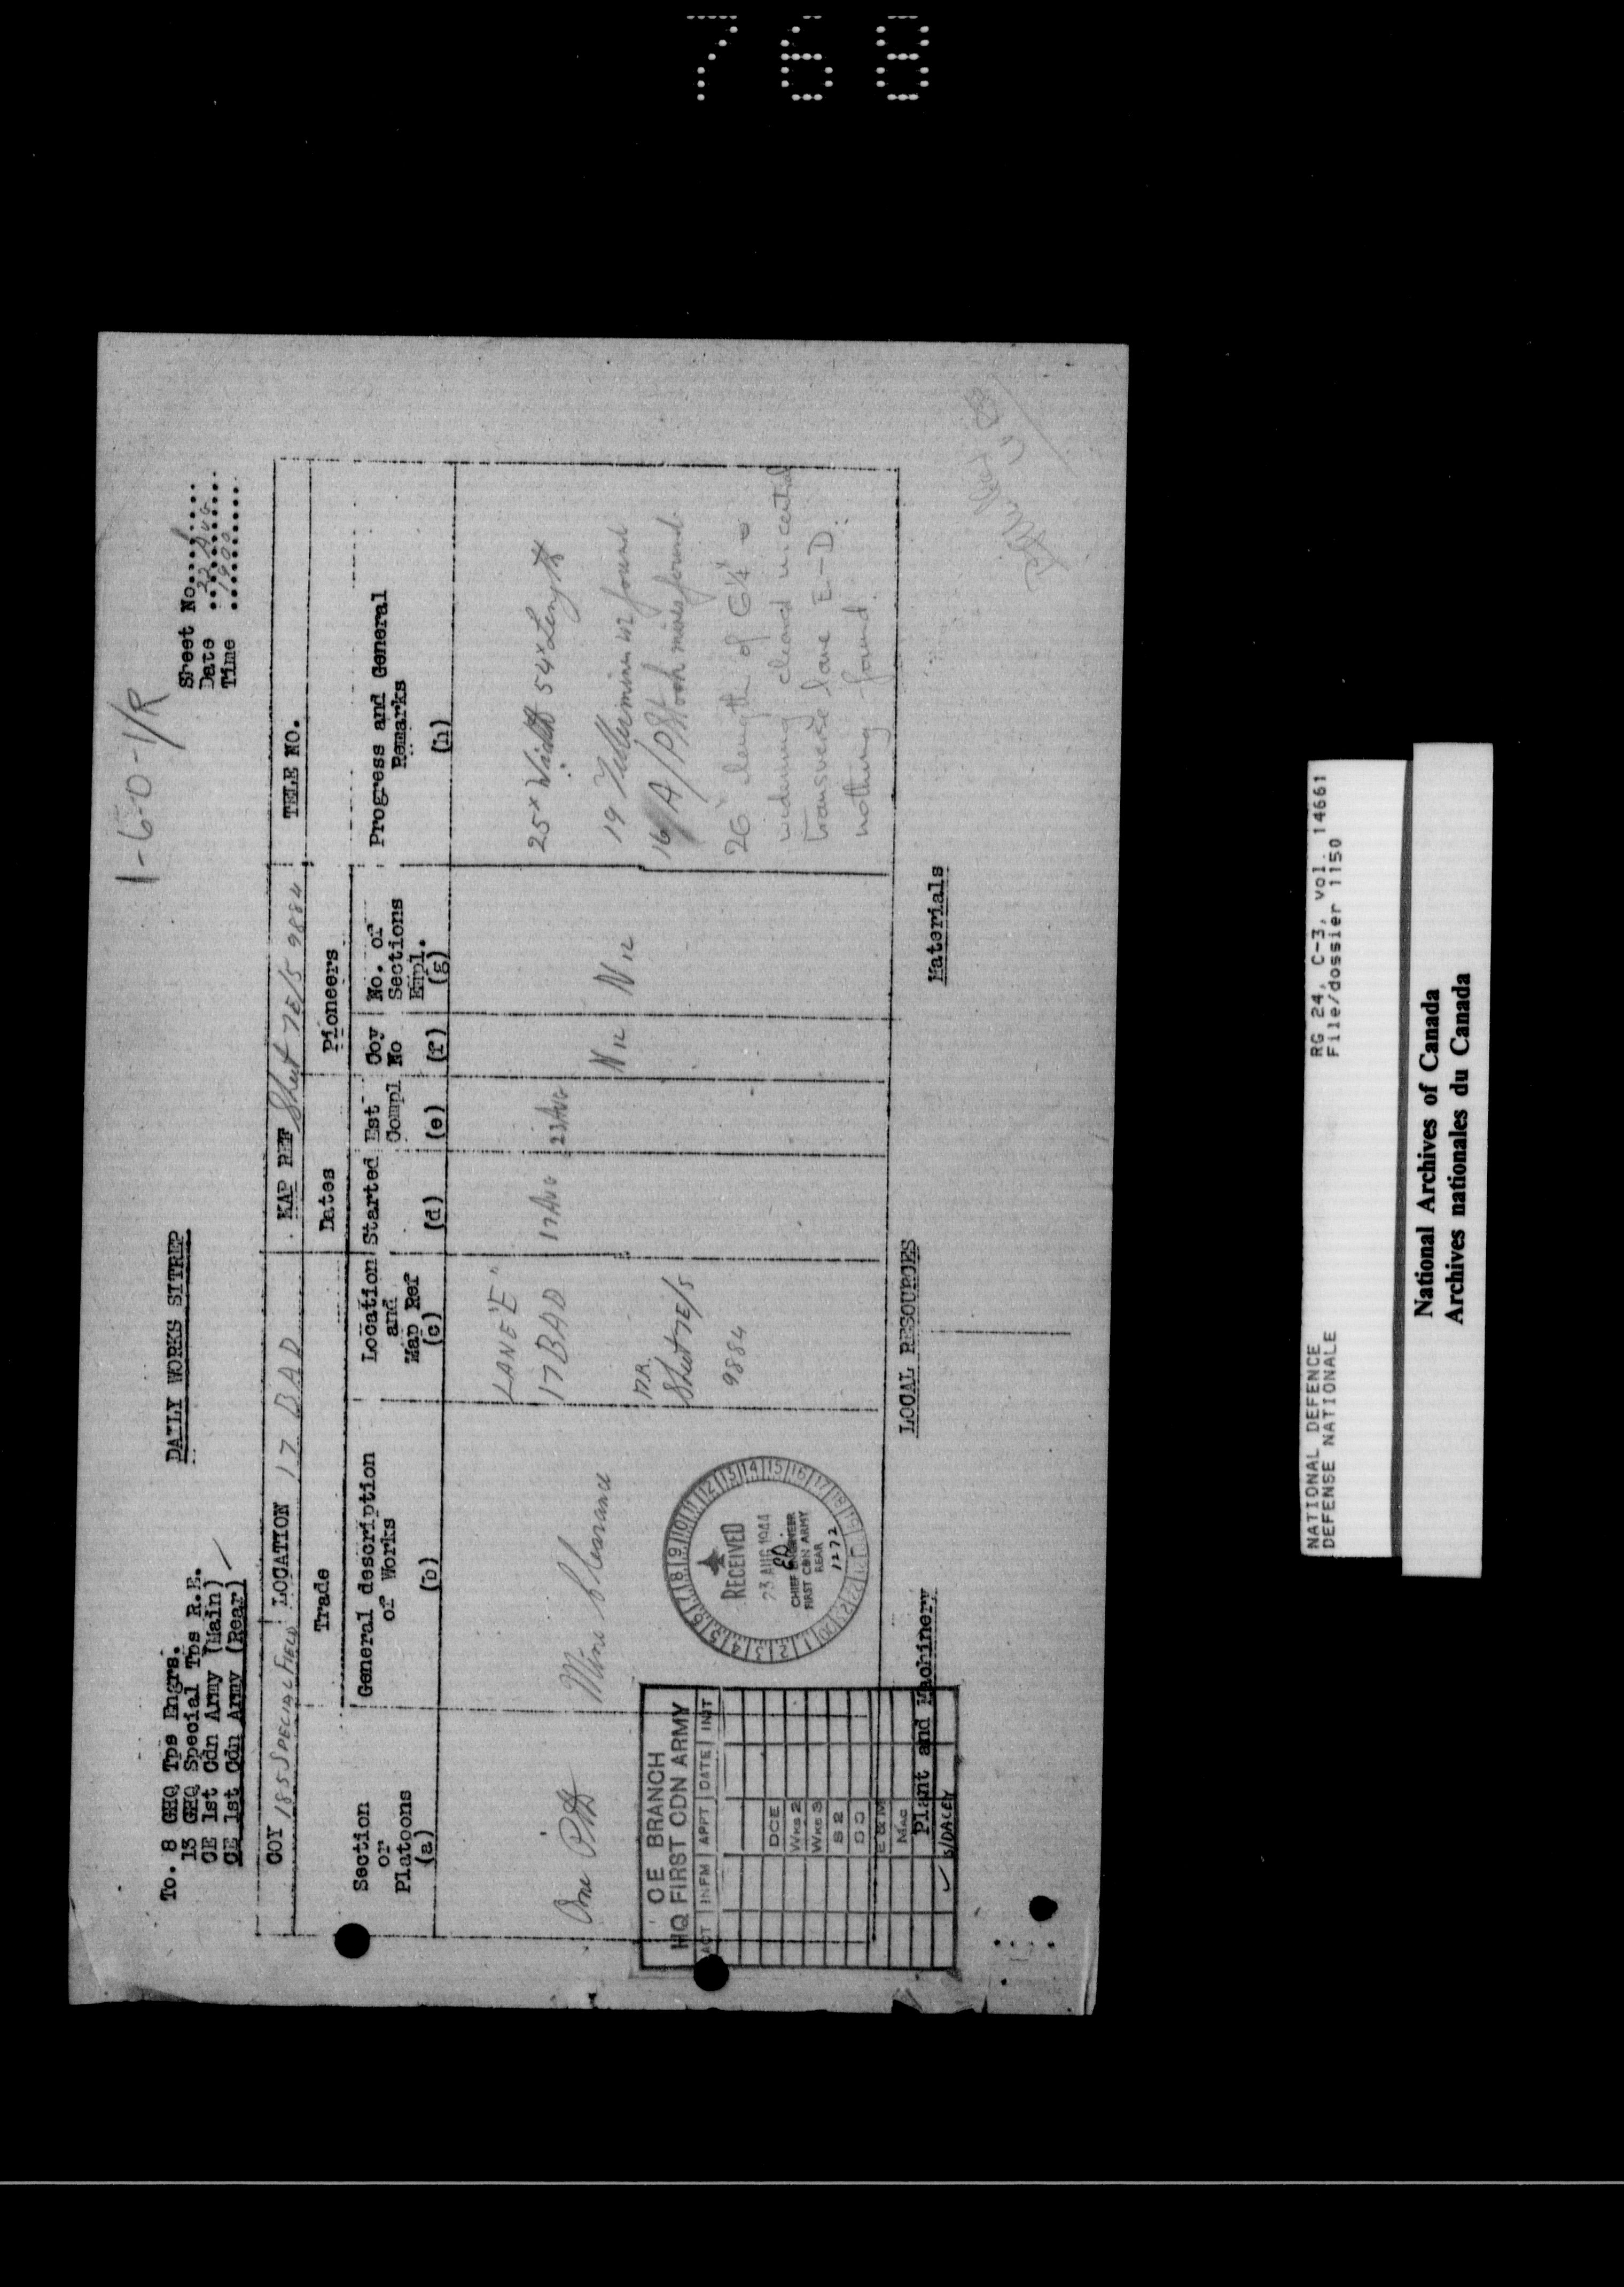 768
1-6-0-1/R
DAILY WORKS SITREP
To. 8 GHQ Tps Engrs.
13 GHQ Special Tps R.E.
CE 1st Cdn Army (Main)
CE 1st Cdn Army (Rear)
Sheet No. 1
Date 22 Aug
Time 1900
COY 185 SPECIAL FIELD LOCATION 17 BAD MAP REF Sheet 7E/5 9884 TELE NO.
Trade Dates Pioneers
Section or Platoons (a)
General description of Works (b)
Location and Map Ref (c)
Started (d)
Est Compl (e)
Coy No (f)
No. of Sections Empl. (g)
Progress and General Remarks (h)
One Pltn
Mine Clearance
LANE "E"
17 BAD
M.R.
Sheet 7E/5
9884
17 AUG
23 AUG
NIL
NIL
25x Width 54x Length
19 Tellermines 42 found
16 A/P Stock mines found
26x length of G 1/4x
widening cleared in central
transverse lane E-D.
nothing found.
RECEIVED
23 AUG 1944
CHIEF ENGINEER
FIRST CDN ARMY
REAR
1272
CE BRANCH
HQ FIRST CDN ARMY
ACT INFM APPT DATE INIT
DCE
Wks 2
Wks 3
S 2
E & M
Mac
S/DACEY
LOCAL RESOURCES
Plant and Machinery
Materials
NATIONAL DEFENCE
DEFENSE NATIONALE
RG 24, C-3, vol. 14661
File/dossier 1150
National Archives of Canada
Archives nationales du Canada